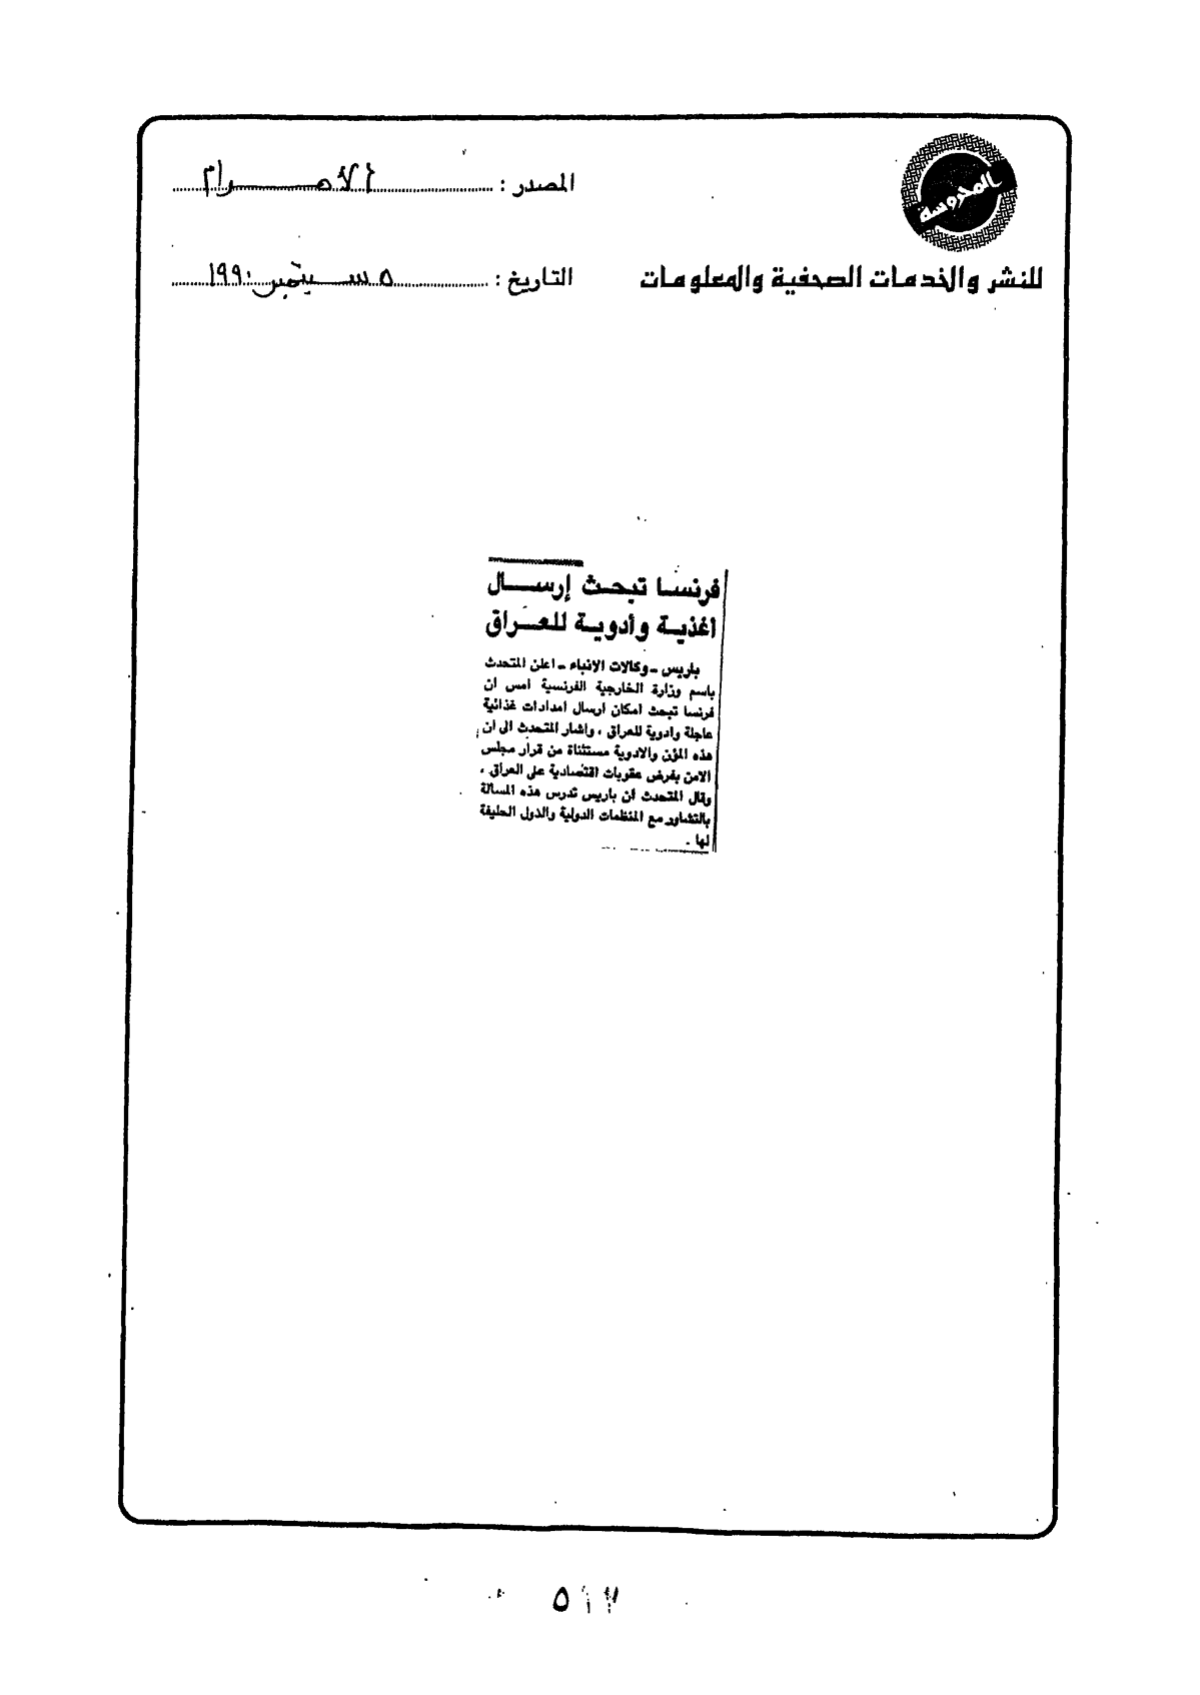 المحروسة
للنشر والخدمات الصحفية والمعلومات
المصدر : الأهـــرام
التاريخ : ٥ ســبتمبر ١٩٩٠
فرنسا تبحث إرســـال
أغذية وأدوية للعــراق
باريس ـ وكالات الانباء ـ اعلن المتحدث
باسم وزارة الخارجية الفرنسية امس ان
فرنسا تبحث امكان ارسال امدادات غذائية
عاجلة وادوية للعراق ، واشار المتحدث الى ان
هذه المؤن والادوية مستثناة من قرار مجلس
الامن بفرض عقوبات اقتصادية على العراق .
وقال المتحدث ان باريس تدرس هذه المسالة
بالتشاور مع المنظمات الدولية والدول الحليفة
لها .
٥١٧